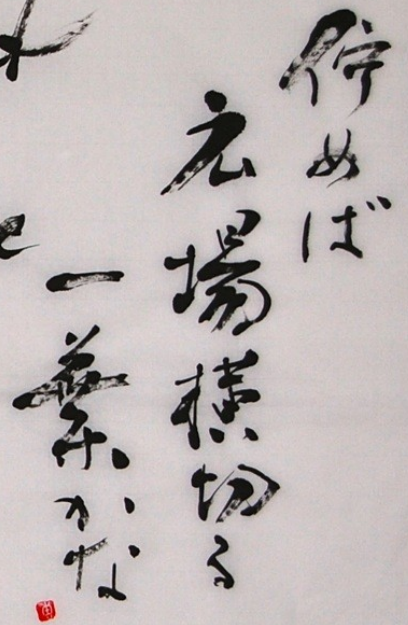 佇めば
広場横切る
一葉かな